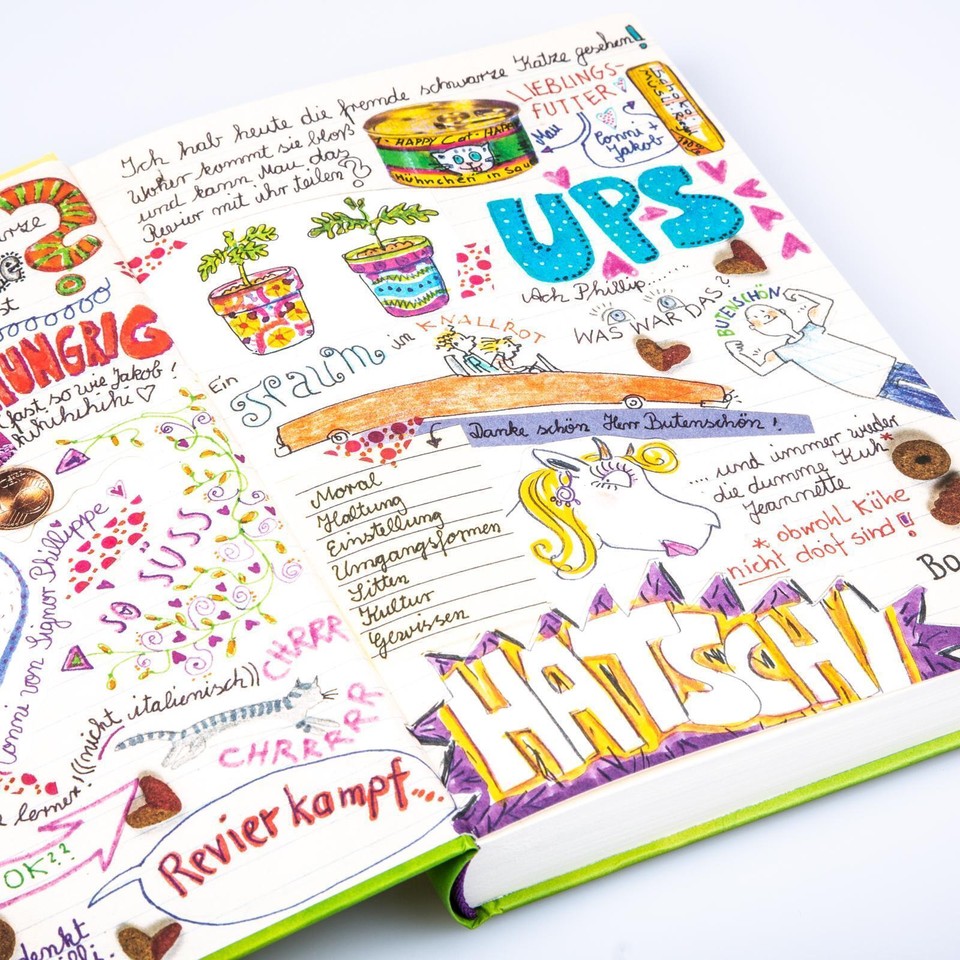 ?
HUNGRIG
(fast so wie Jakob!
hihihihihi ♡
so süss
Conni von Signor Phillippe
((nicht italienisch))
CHRRR
CHRRRRR
OK??
Revierkampf....
denkt
Ich hab heute die fremde schwarze Katze gesehen!
Woher kommt sie bloß
und kann Mau das
Revier mit ihr teilen?
HAPPY Cat · HAPPY
Hühnchen in Sau
LIEBLINGS-
FUTTER
Mau
Conni +
Jakob
UPS
Ach Phillip......
WAS WAR DAS?
BUTENSCHÖN
Ein
TRAUM in KNALLROT
Danke schön Herr Butenschön!
Moral
Haltung
Einstellung
Umgangsformen
Sitten
Kultur
Gewissen
.... und immer wieder
die dumme Kuh*
Jeannette
* obwohl Kühe
nicht doof sind!
Bo
HATSCHI